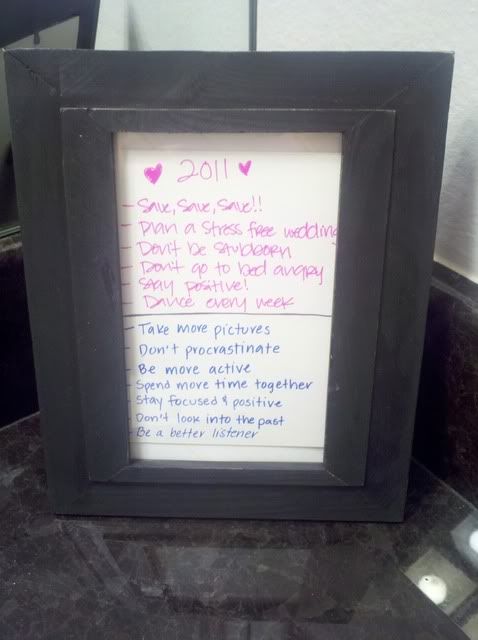 2011
- Save, Save, Save!!
- Plan a Stress free wedding
- Don't be Stubborn
- Don't go to bed angry
- Stay positive!
- Dance every week
- Take more pictures
- Don't procrastinate
- Be more active
- Spend more time together
- Stay focused & positive
- Don't look into the past
- Be a better listener